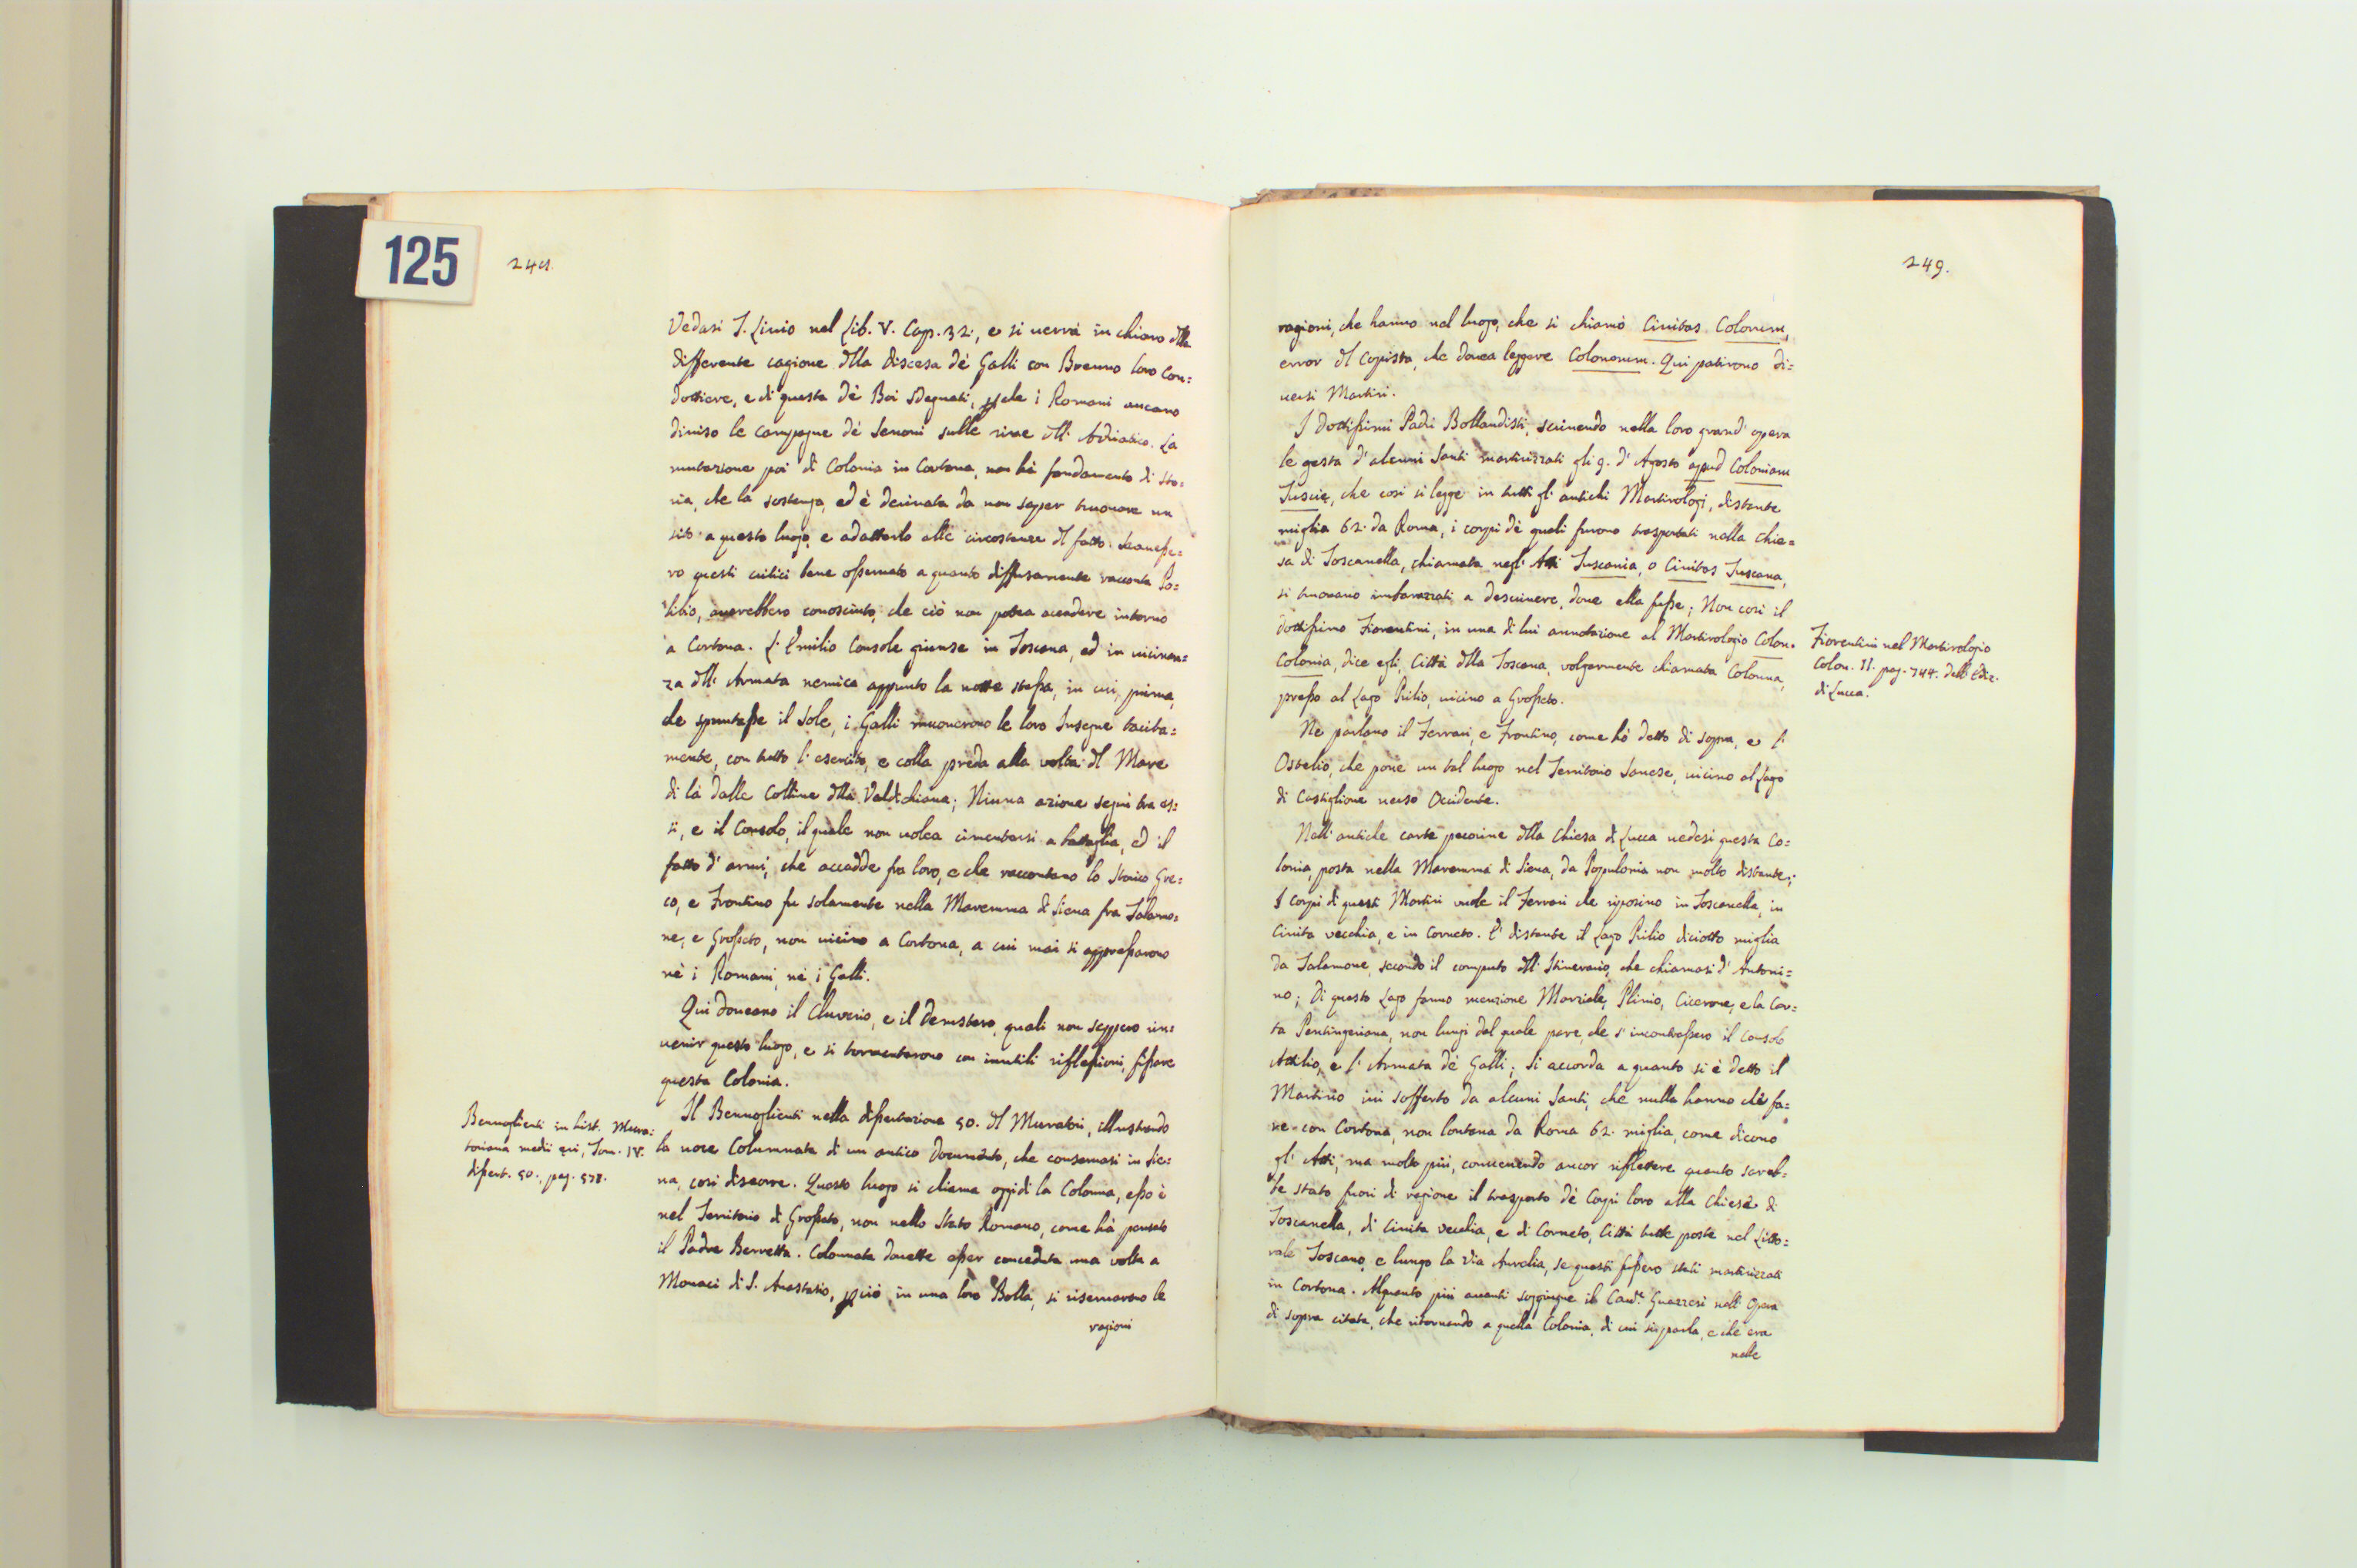 125
248.
Vedasi T. Livio nel Lib. V. Cap. 32., e si verrà in chiaro dlla
differente cagione dlla discesa dè Galli con Brenno loro Con=
dottiere, e di questa dè Boi sdegnati, pche i Romani aveano
diviso le campagne dè Senoni sulle rive dll' Adriatico. La
mutazione poi di Colonia in Cortona, non hà fondamento di Sto=
ria, che la sostenga, ed è derivata da non saper truovare un
sito a questo luogo, e adattarlo alle circostanze dl fatto. Se avesse=
ro questi critici bene osservato a quanto diffusamente racconta Po=
libio, averebbero conosciuto, che ciò non potea accadere intorno
a Cortona. L' Emilio Console giunse in Toscana, ed in vicinan=
za dll' Armata nemica appunto la notte stessa, in cui, prima,
che spuntasse il Sole, i Galli muoverono le loro Insegne tacita=
mente, con tutto l' esercito, e colla preda alla volta dl Mare
di là dalle Colline dlla Valdichiana; Niuna azione seguì tra es=
si, e il Consolo, il quale non volea cimentarsi a battaglia, ed il
fatto d' armi, che accadde fra loro, e che raccontano lo Storico Gre=
co, e Frontino fu solamente nella Maremma di Siena fra Talamo=
ne, e Grosseto, non vicino a Cortona, a cui mai si appressarono
nè i Romani, nè i Galli.
Qui doveano il Cluverio, e il Demstero, quali non seppero rin=
venir questo luogo, e si tormentarono con inutili riflessioni, fissare
questa Colonia.
Il Benvoglienti nella dissertazione 50. dl Muratori, illustrando
la voce Columnata di un antico Documento, che conservasi in Sie=
na, così discorre. Questo luogo si chiama oggidì la Colonna, esso è
nel Territorio di Grosseto, non nello Stato Romano, come hà pensato
il Padre Berretta. Colonnata dovette esser conceduta una volta a
Monaci di S. Anastasio, pciò, in una loro Bolla, si riservarono le
ragioni
Benvoglienti in hist. Mura=
toriana medii evi, Tom. IV.
dissert. 50., pag. 578.
249.
ragioni, che hanno nel luogo, che si chiamò Civitas Colonum,
error dl Copista, che dovea leggere Colonorum. Qui patirono di=
versi Martiri.
I dottissimi Padri Bollandisti, scrivendo nella loro grand' opera
le gesta d' alcuni Santi martirizzati gli 9. d' Agosto apud Coloniam
Tuscie, che così si legge in tutti gl' antichi Martirologi, distante
miglia 62. da Roma, i corpi dè quali furono trasportati nella Chie=
sa di Toscanella, chiamata negl' Atti Tuscania, o Civitas Tuscana,
si truovano imbarazzati a descrivere, dove ella fusse; Non così il
dottissimo Fiorentini, in una di lui annotazione al Martirologio Colon.
Colonia, dice egli, Città dlla Toscana, volgarmente chiamata Colonna,
presso al Lago Prilio, vicino a Grosseto.
Ne parlano il Ferrari, e Frontino, come hò detto di sopra, e l'
Ostelio, che pone un tal luogo nel Territorio Sanese, vicino al Lago
di Castiglione verso Occidente.
Nell' antiche carte pecorine dlla Chiesa di Lucca vedesi questa Co=
lonia, posta nella Maremma di Siena, da Populonia non molto distante;
I corpi di questi Martiri vuole il Ferrari che riposino in Toscanella, in
Civita vecchia, e in Corneto. E' distante il Lago Prilio diciotto miglia
da Talamone, secondo il computo dll' Itinerario, che chiamasi d' Antoni=
no; Di questo Lago fanno menzione Marziale, Plinio, Cicerone, e la Car=
ta Peutingeriana, non lungi dal quale pare, che s' incontrassero il Consolo
Attilio, e l' Armata dè Galli; Si accorda a quanto si è detto il
Martirio ivi sofferto da alcuni Santi, che nulla hanno che fa=
re con Cortona, non lontana da Roma 62. miglia, come dicono
gl' Atti, ma molto più, convenendo ancor riflettere quanto sareb=
be stato fuori di ragione il trasporto dè Corpi loro alla Chiesa di
Toscanella, di Civita vecchia, e di Corneto, Città tutte poste nel Litto=
rale Toscano, e lungo la Via Aurelia, se questi fossero stati martirizzati
in Cortona. Alquanto più avanti soggiugne il Cav.e Guazzesi nell' Opera
di sopra citata, che ritornando a quella Colonia, di cui si parla, e che era
nelle
Fiorentini nel Martirologio
Colon. II. pag. 744. dell' Ediz.
di Lucca.